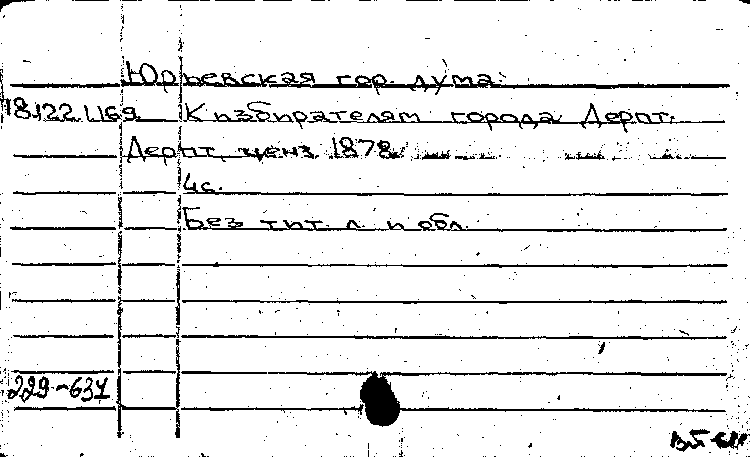 Юрьевская гор. дума.
18.122.1.169 К избирателям города Дерпт.
Дерпт, ценз. 1878
4с.
Без тит. л. и обл.
229-637